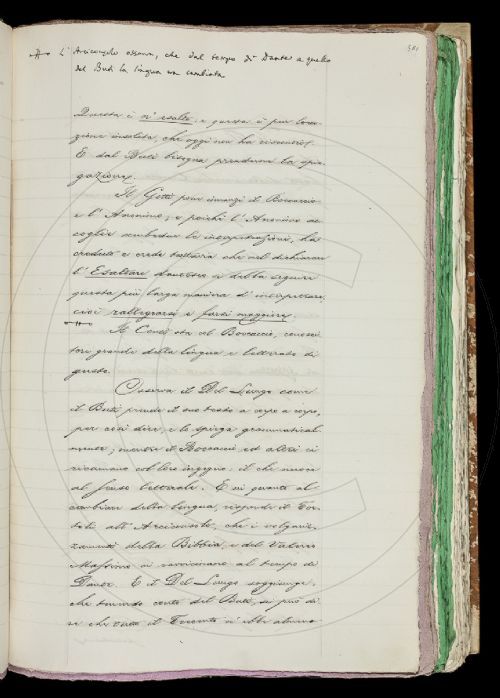 L'Arciconsolo osserva, che dal tempo di Dante a quello
del Buti la lingua era cambiata
381
Questa è n'esalto: e questa è pur locu-
zione insolita, che oggi non ha riscontro.
E dal Buti bisogna prendere la spie-
gazione.
Il Gotti pone innanzi il Boccaccio
e l'Anonimo, e poichè l'Anonimo ac-
coglie le interpretazioni, ha
creduto e crede tuttavia che nel dichiarare
l'Esaltare si debba seguire
questa più larga maniera d'interpretare,
cioè rallegrarsi e farsi maggiore.
Il Conti sta al Boccaccio, conosci-
tore grande della lingua e letterato di
gusto.
Osserva il Del Lungo come
il Buti prende il suo testo a corpo a corpo,
per così dire, e lo spiega grammatical-
mente, mentre il Boccaccio ed altri ci
ricamano col loro ingegno: il che nuoce
al senso letterale. E in quanto al
cambiare della lingua, risponde il Tor-
toli all'Arciconsolo, che i volgariz-
zamenti della Bibbia, e del Valerio
Massimo si ravvicinano al tempo di
Dante. E il Del Lungo soggiunge,
che tenendo conto del Buti, si può di-
re che tutto il Trecento n'ebbe alcuno